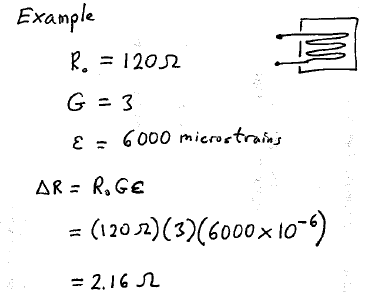 Example
R₀ = 120Ω
G = 3
ε = 6000 microstrains
ΔR = R₀Gε
= (120 Ω)(3)(6000 × 10⁻⁶)
= 2.16 Ω